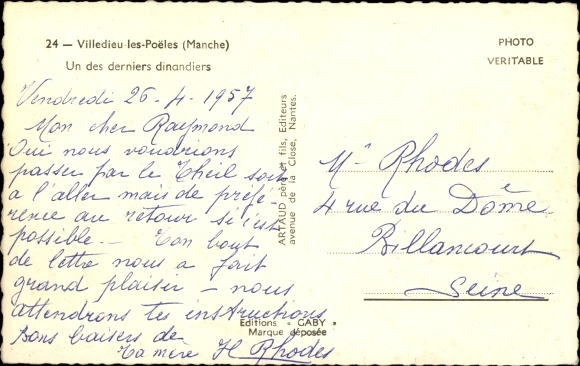 24 — Villedieu-les-Poëles (Manche)
Un des derniers dinandiers
PHOTO
VERITABLE
Vendredi 26-4-1957
Mon cher Raymond
Oui nous voudrions
passer par le Theil soit
a l'aller mais de préfé
rence au retour si c'est
possible. — Ton bout
de lettre nous a fait
grand plaisir — nous
attendrons tes instructions
Bons baisers de
Ta mère H Rhodes
ARTAUD père et fils, Editeurs
avenue de la Close, Nantes.
Mr Rhodes
4 rue du Dôme
Billancourt
Seine
Editions « GABY »
Marque déposée